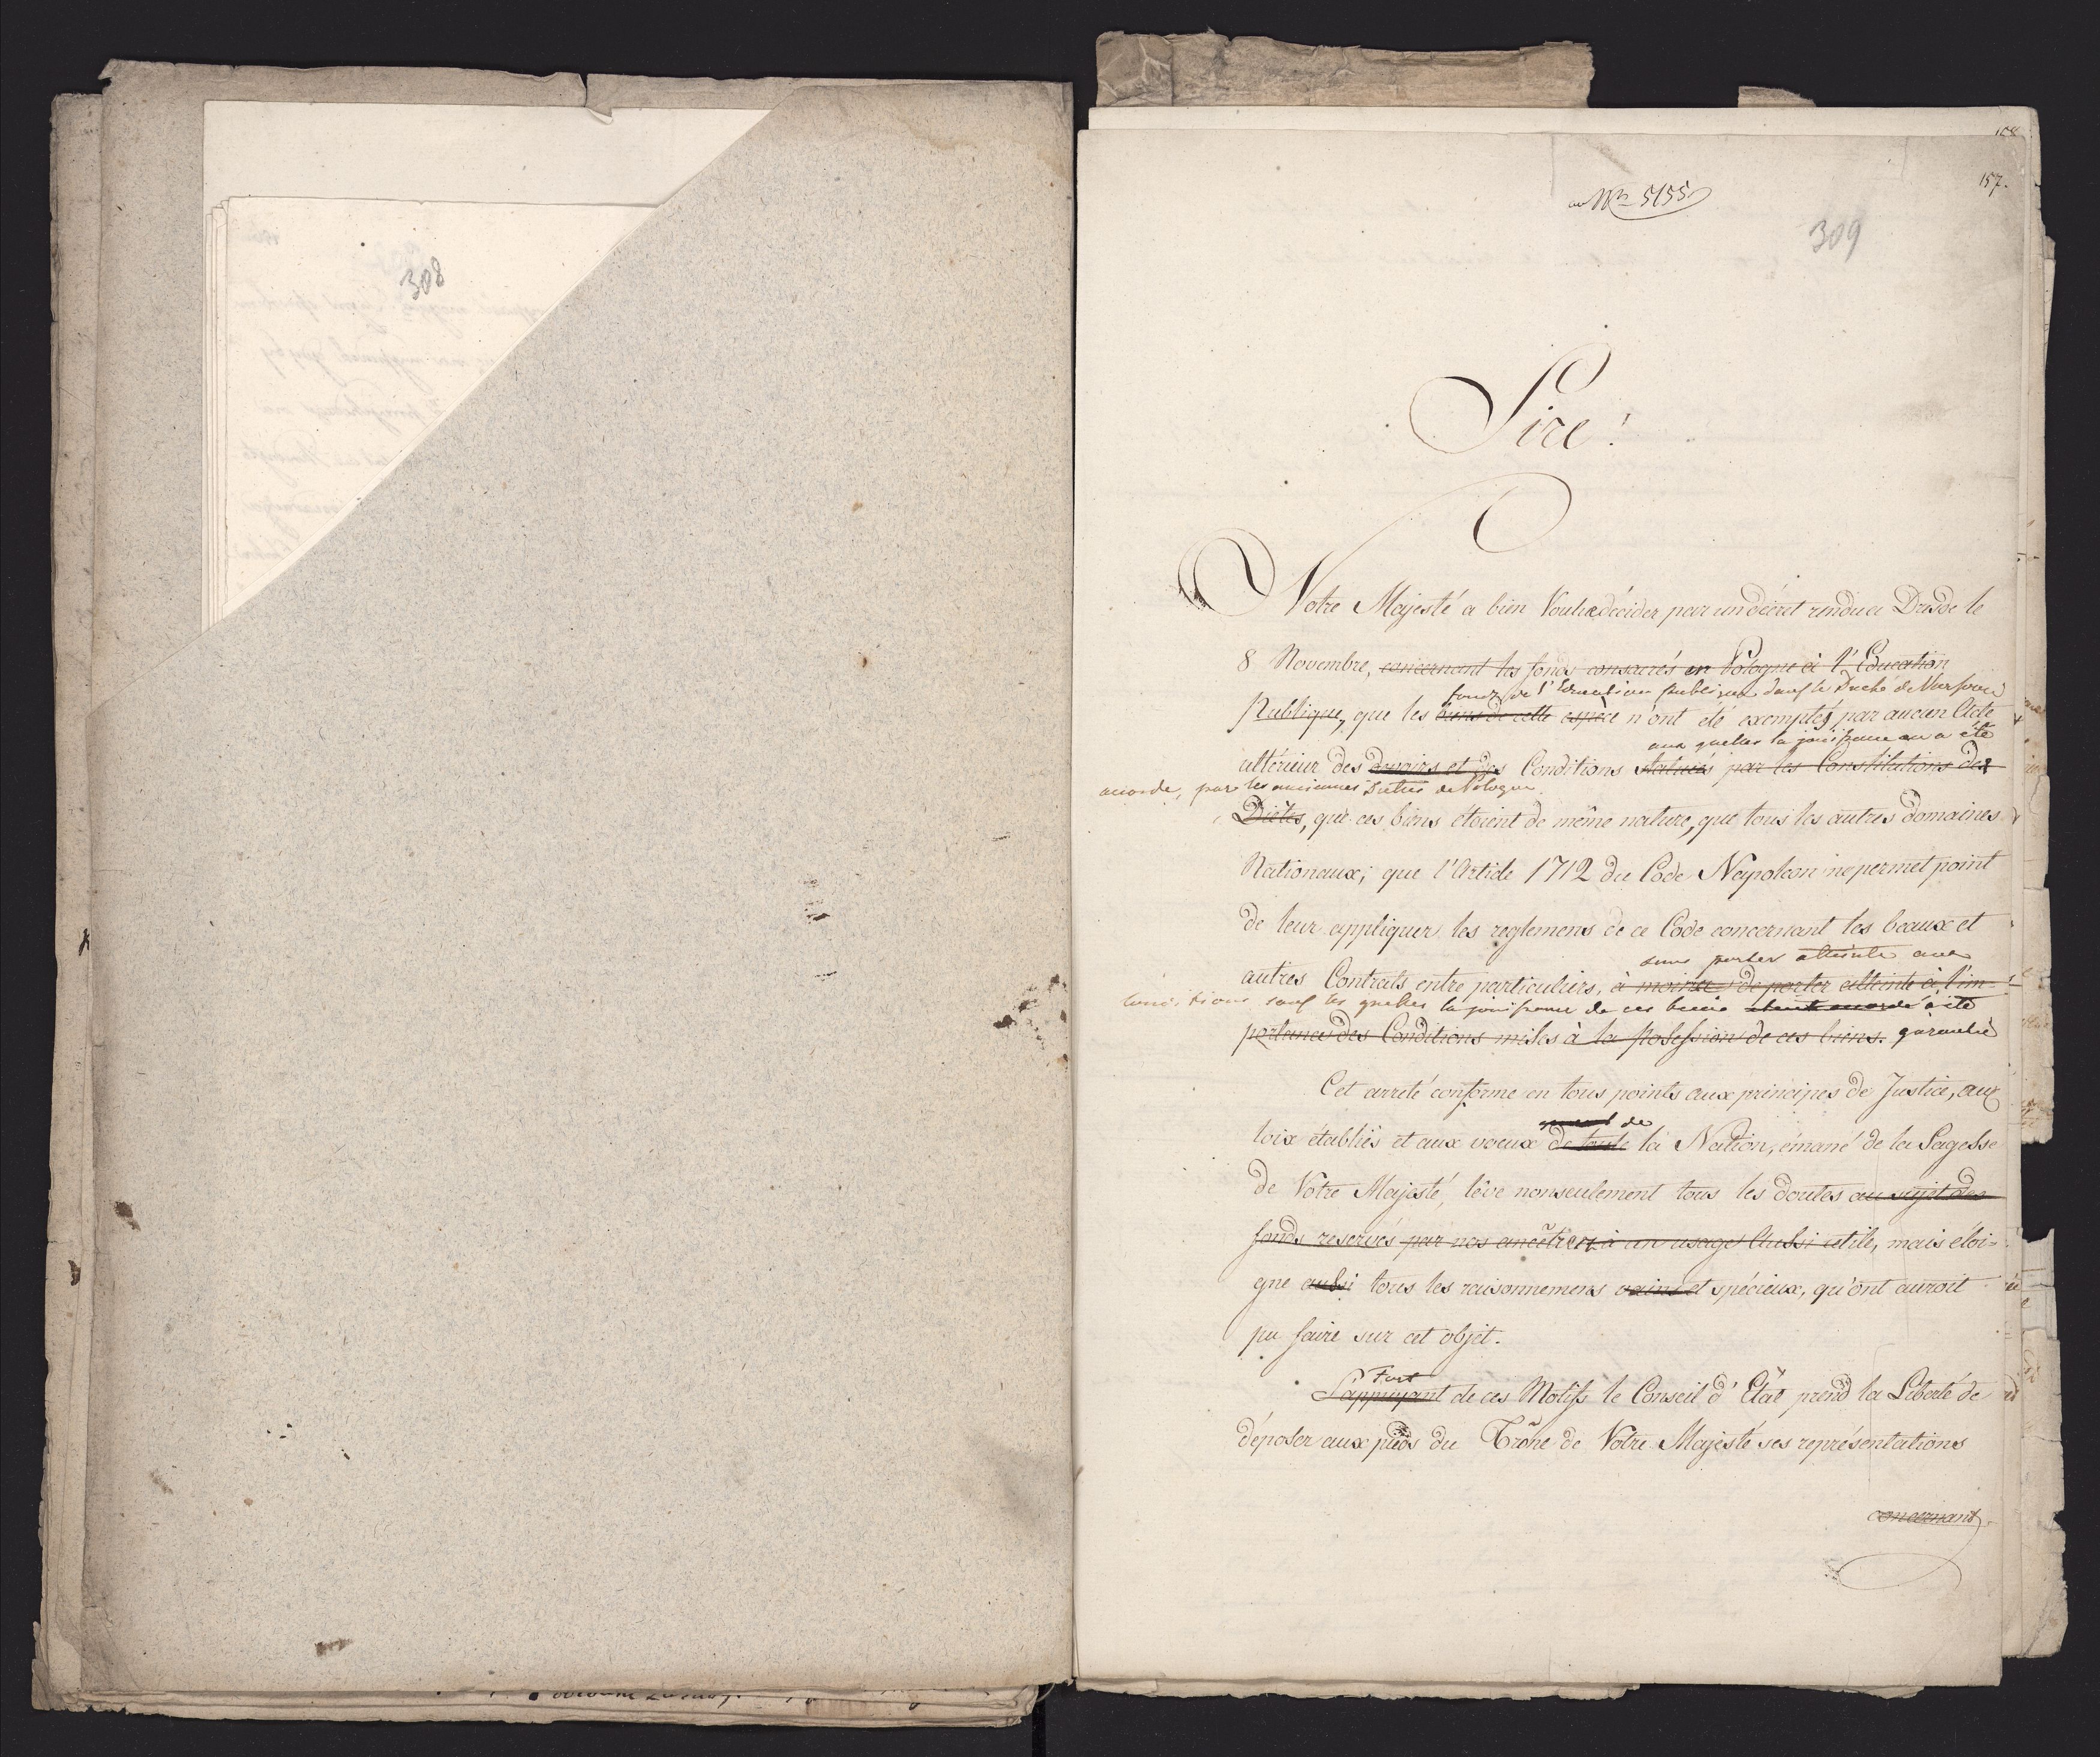 308
108
157.
ad Nr 5155
309
Sire!
Votre Majesté a bien Voulu décider par un décret rendu a Dresde le
8 Novembre, concernant les fonds consacrés en Pologne à l'Education
fonds de l'Education publique dans le Duché de Varsovie
Publique, que les biens de cette espèce n'ont été exemptés par aucun Acte
aux quelles la jouissance en a été
ultérieur des devoirs et des Conditions statuées par les Constitutions des
accordé, par les anciennes Diètes de Pologne
Diètes, que ces biens étoient de même nature, que tous les autres domaines
Nationaux; que l'Article 1712 du Code Napoleon ne permet point
de leur appliquer les reglemens de ce Code concernant les beaux et
sans porter atteinte aux
autres Contrats entre particuliers, à moins de porter atteinte à l'im-
conditions sous les quelles la jouissance de ces biens étant accordé a été
portance des Conditions mises à la possession de ces biens. garantie
Cet arreté conforme en tous points aux principes de Justice, aux
de
loix établies et aux voeux de toute la Nation, émané de la Sagesse
de Votre Majesté, lève nonseulement tous les doutes au sujet des
fonds reservés par nos ancêtres à un usage Aussi utile, mais éloi=
gne aussi tous les raisonnemens vains et spécieux, qu'ont auroit
pu faire sur cet objet.
Fort
S'appuyant de ces Motifs le Conseil d'Etat prend la Liberté de
déposer aux pieds du Trône de Votre Majesté ses représentations
concernant